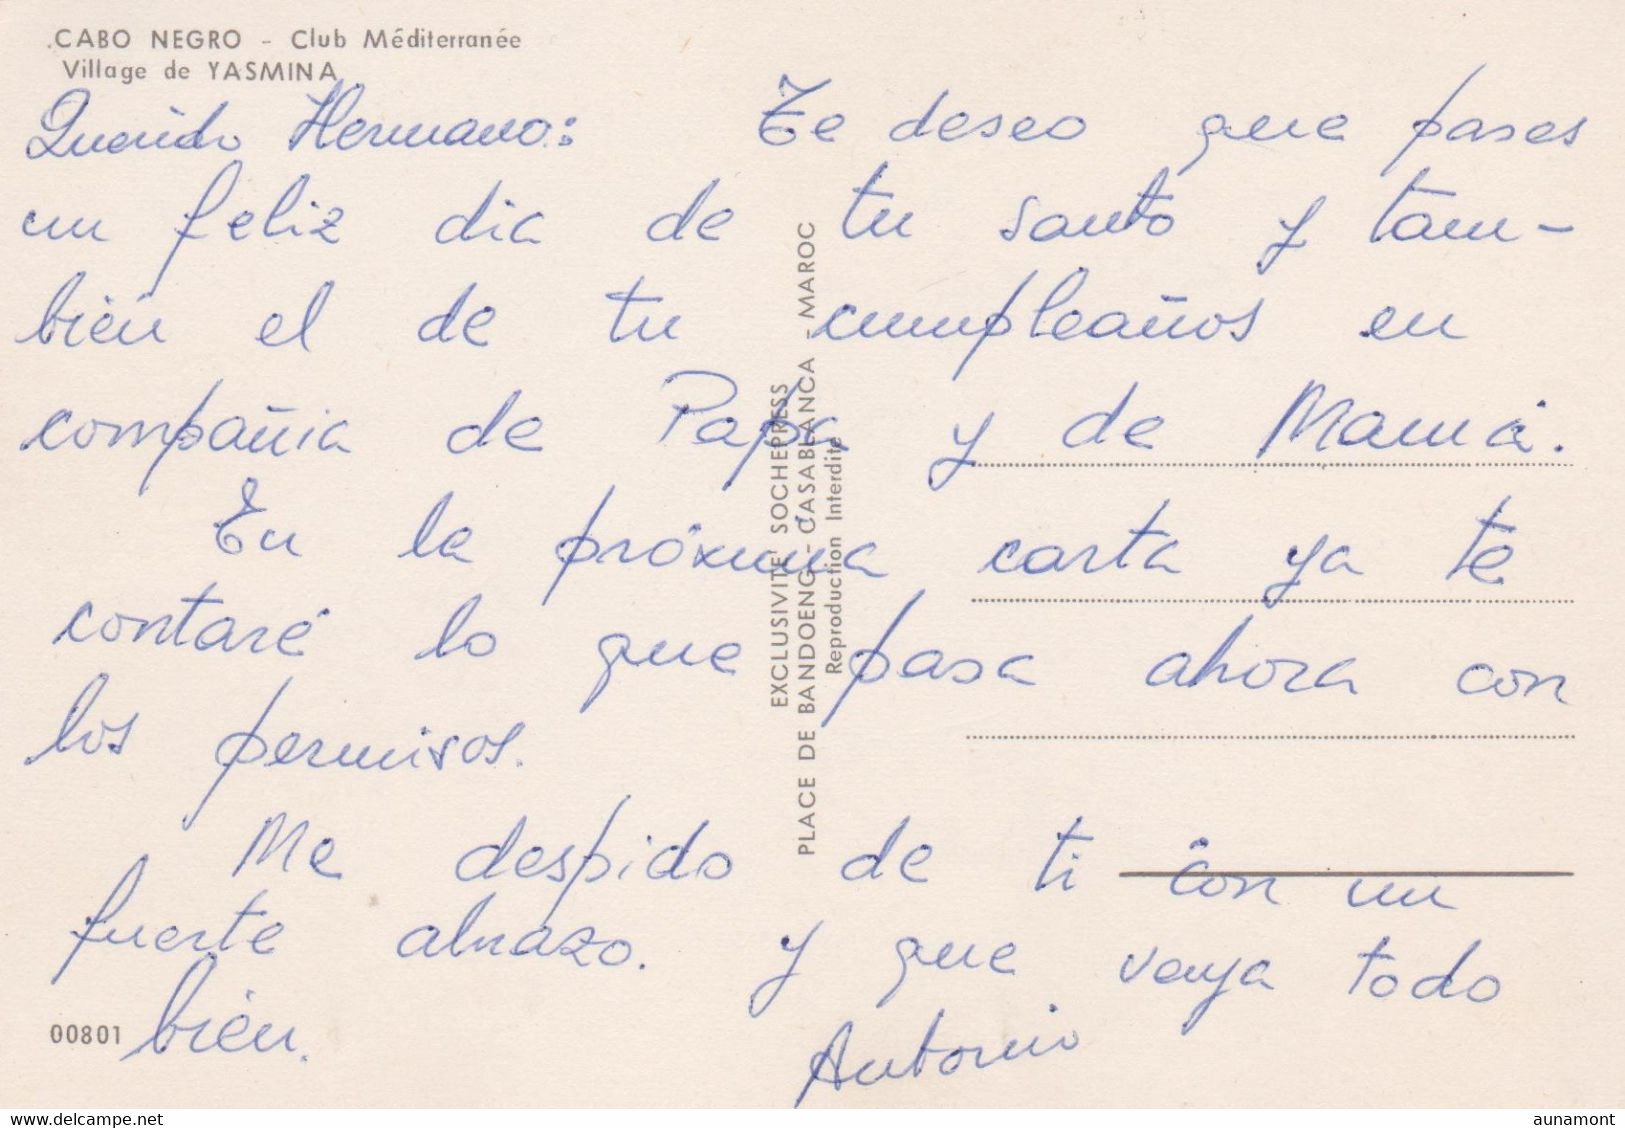 CABO NEGRO - Club Méditerranée
Village de YASMINA
Querido Hermano: Te deseo que pases
un feliz dia de tu santo y tam-
bién el de tu cumpleaños en
compañia de Papa y de Mamá.
En la próxima carta ya te
contaré lo que pasa ahora con
los permisos.
Me despido de ti con un
fuerte abrazo. y que vaya todo
bién.
Antonio
EXCLUSIVITE SOCHEPRESS
PLACE DE BANDOENG - CASABLANCA - MAROC
Reproduction Interdite
00801
https://www.delcampe.net
aunamont